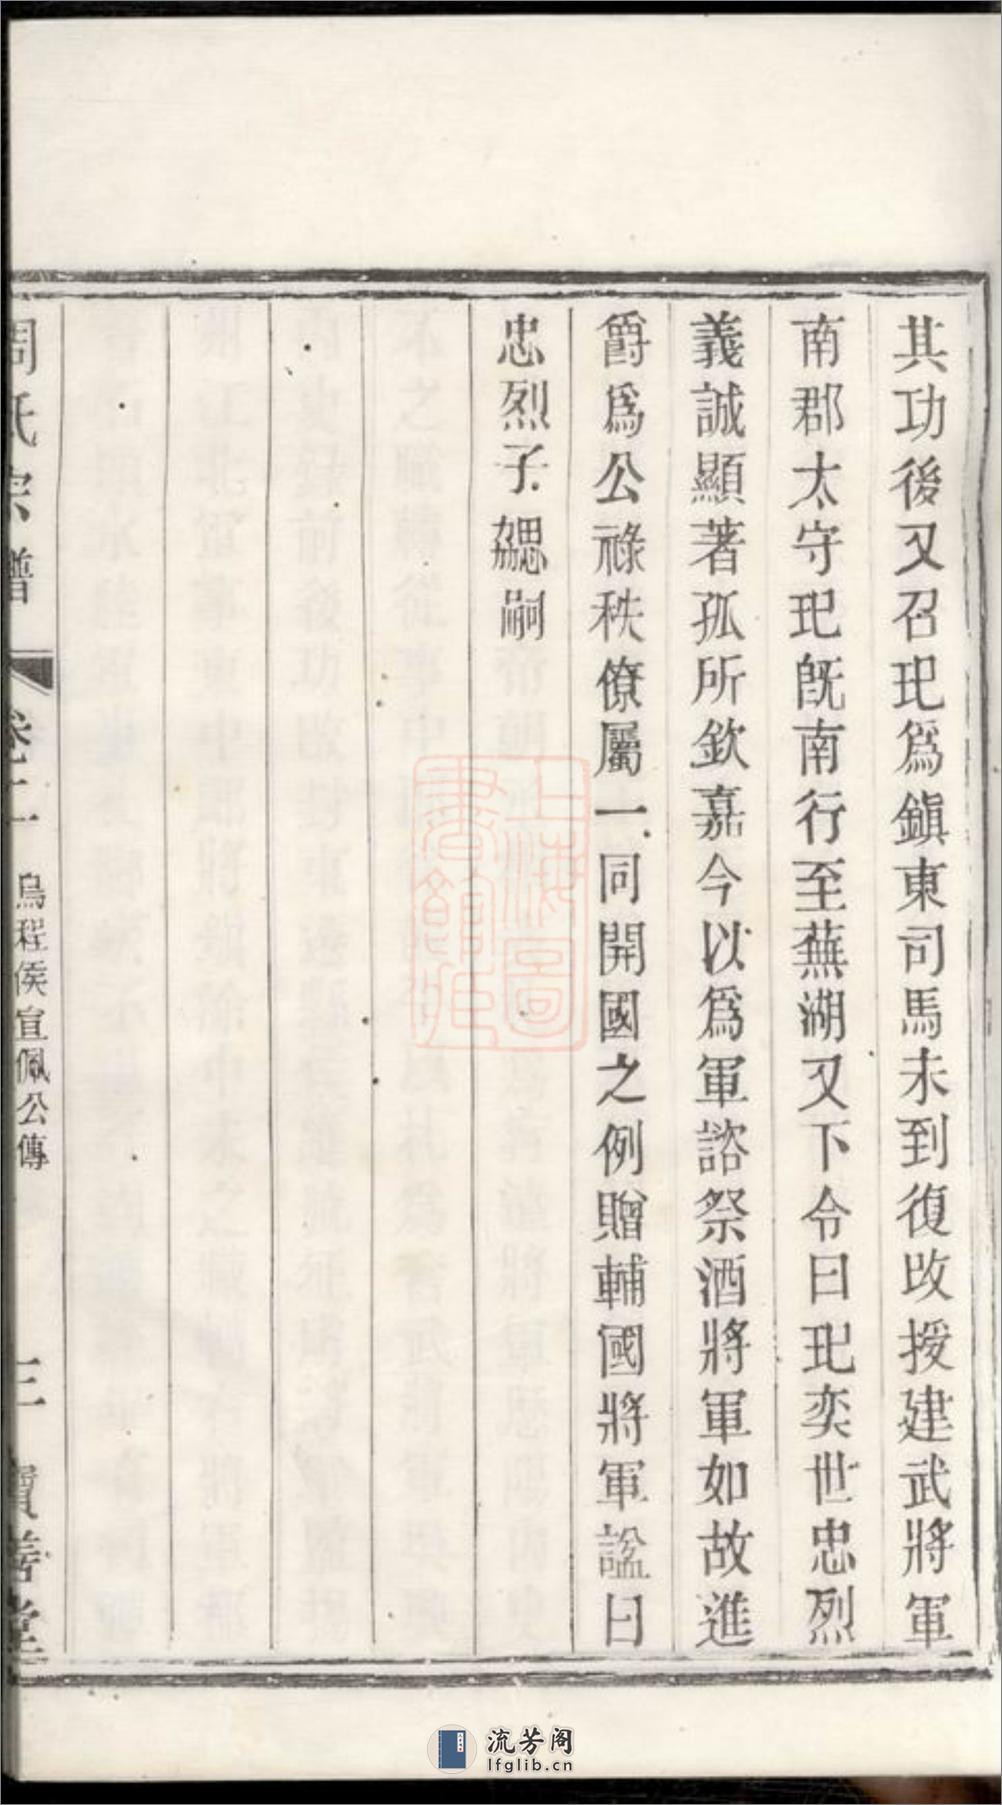 其功後又召玘爲鎭東司馬未到復改授建武將軍
南郡太守玘旣南行至蕪湖又下令曰玘奕世忠烈
義誠顯著孤所欽嘉今以爲軍諮祭酒將軍如故進
爵爲公祿秩僚屬一同開國之例贈輔國將軍諡曰
忠烈子勰嗣
周氏宗譜 卷二 烏程侯宣佩公傳 三 寶善堂
上海圖書館藏
流芳阁
lfglib.cn